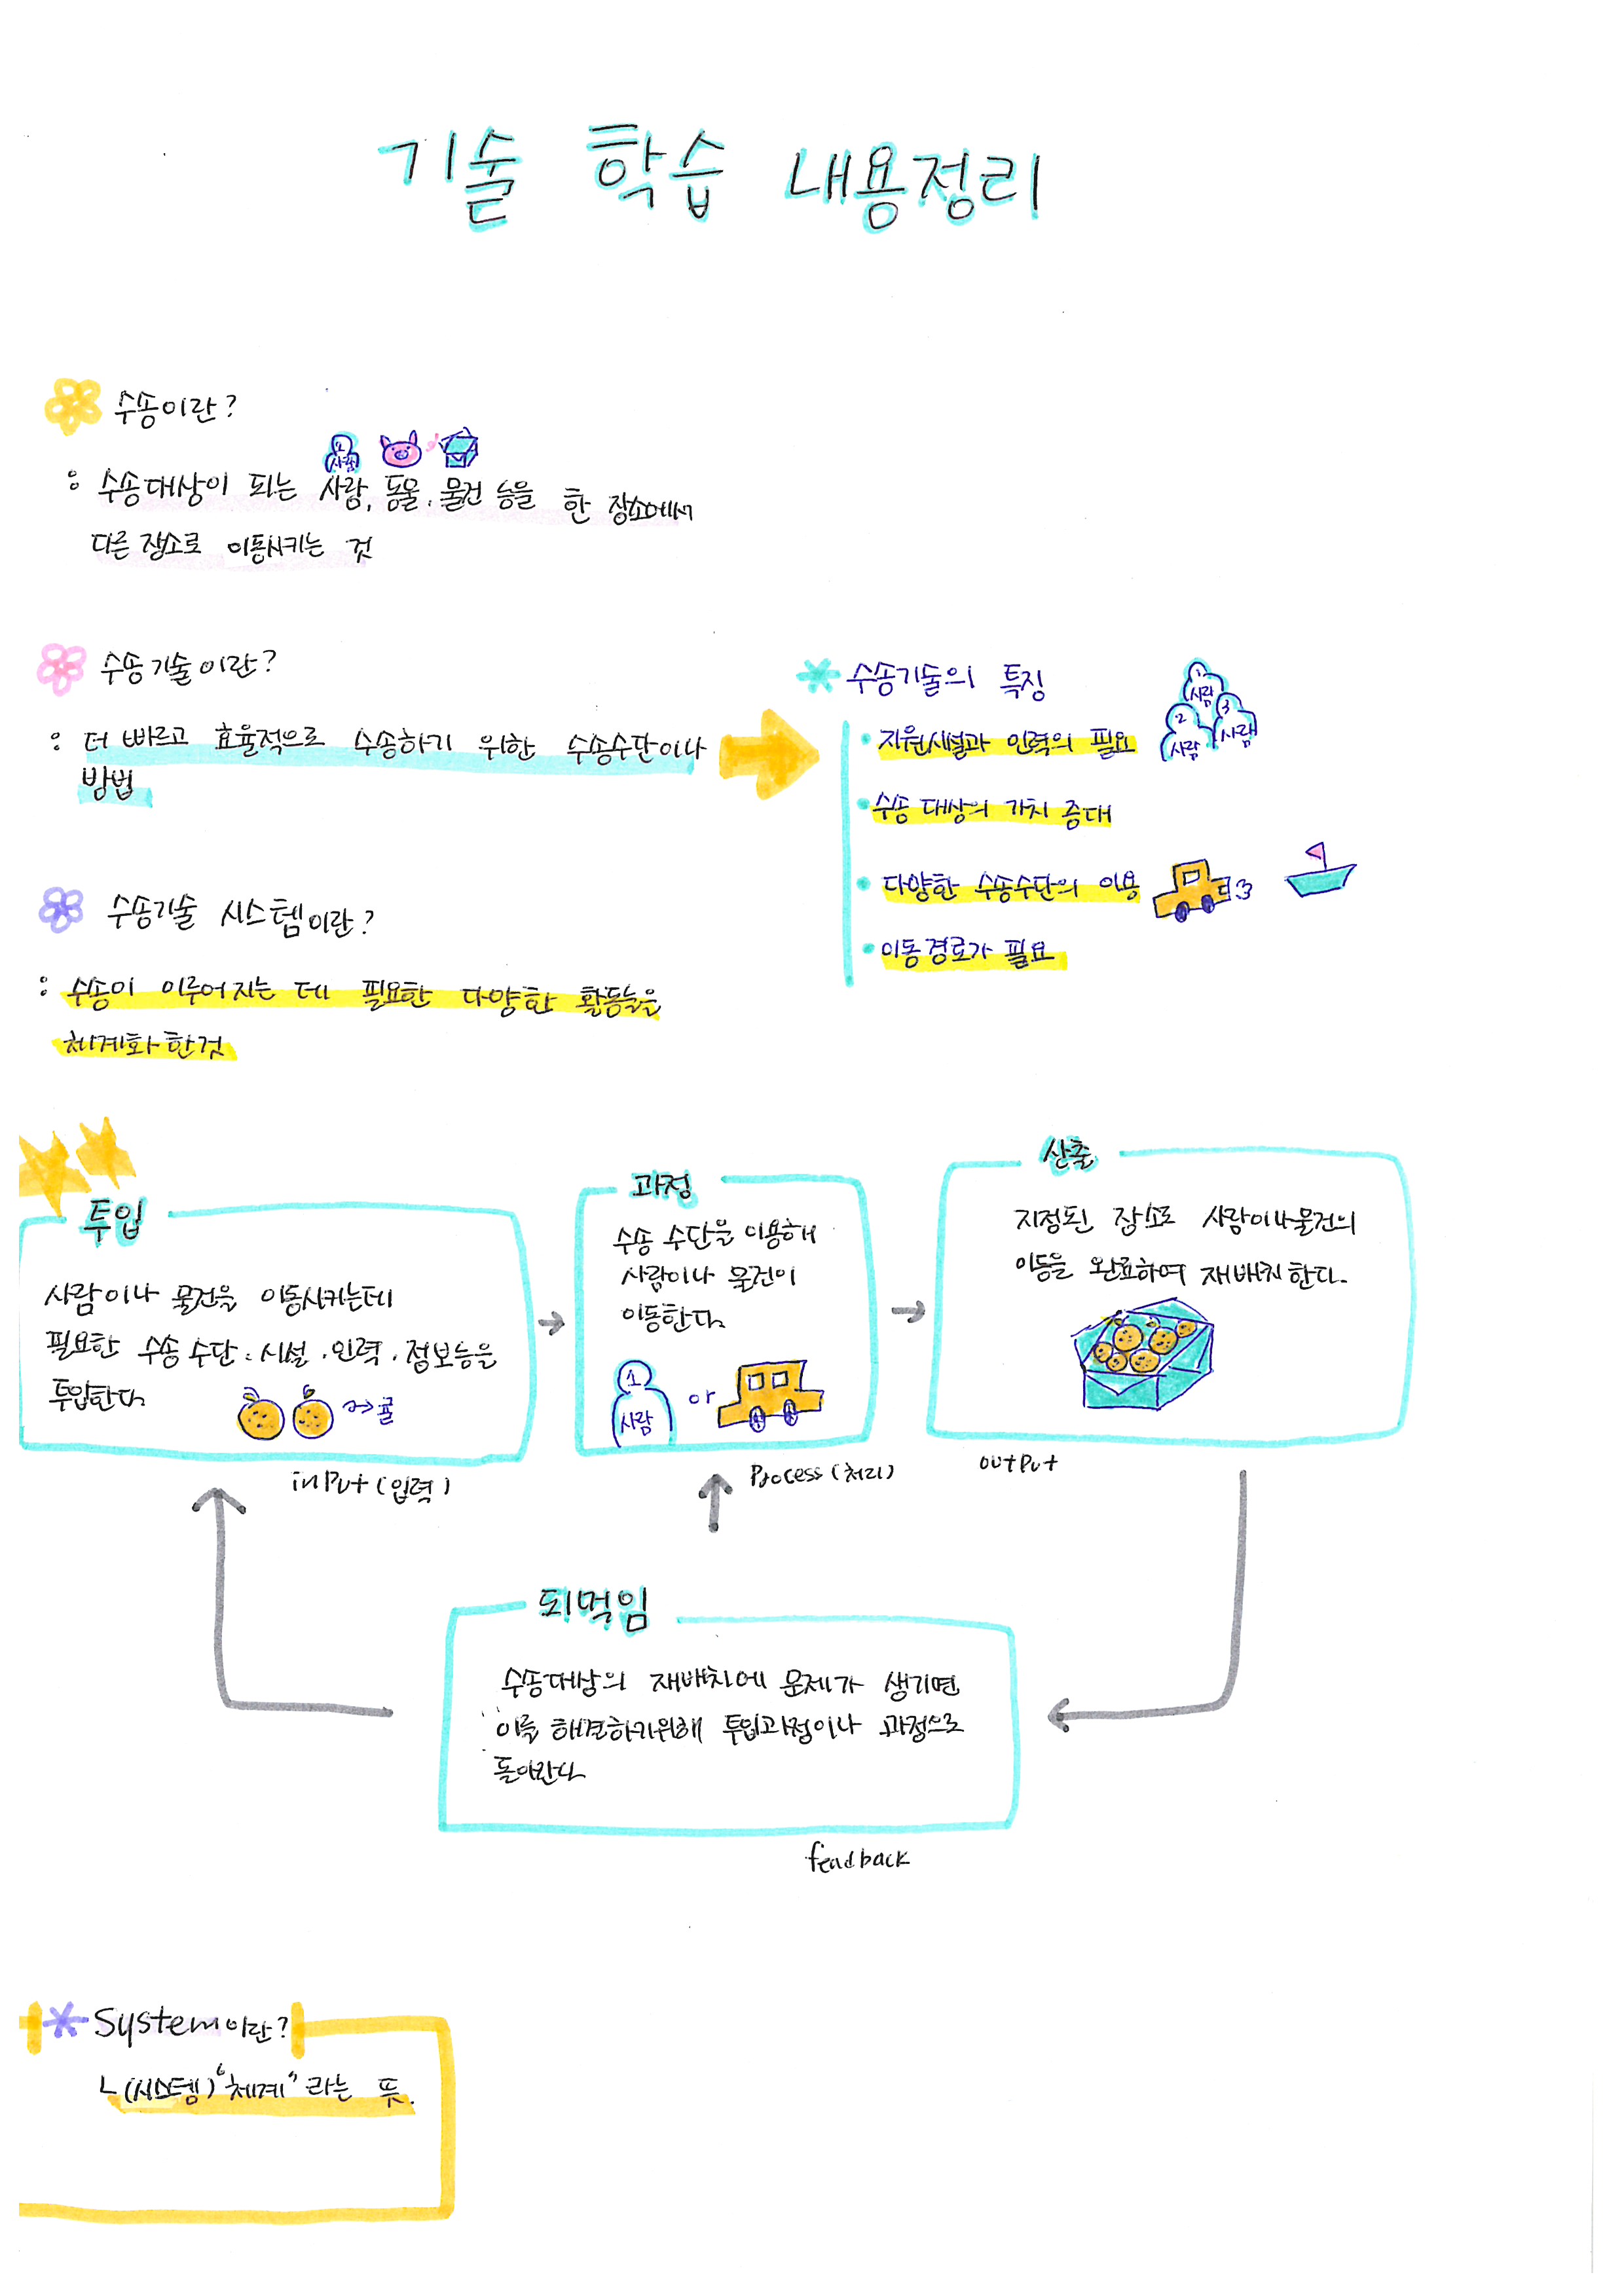 기술 학습 내용정리
수송이란?
1
사람
: 수송대상이 되는 사람, 동물, 물건 등을 한 장소에서
다른 장소로 이동시키는 것
수송기술이란?
: 더 빠르고 효율적으로 수송하기 위한 수송수단이나
방법
수송기술의 특징
• 지원시설과 인력의 필요
1
사람
2
사람
3
사람
• 수송 대상의 가치 증대
• 다양한 수송수단의 이용
• 이동경로가 필요
수송기술 시스템이란?
: 수송이 이루어지는 데 필요한 다양한 활동들을
체계화 한것
투입
사람이나 물건을 이동시키는데
필요한 수송 수단 · 시설 · 인력 · 정보등을
투입한다.
→ 귤
input (입력)
과정
수송 수단을 이용해
사람이나 물건이
이동한다.
1
사람
or
Process (처리)
산출
지정된 장소로 사람이나 물건의
이동을 완료하여 재배치 한다.
output
되먹임
수송대상의 재배치에 문제가 생기면
이를 해결하기위해 투입과정이나 과정으로
돌아간다
feadback
* System이란?
ㄴ(시스템) "체계" 라는 뜻.